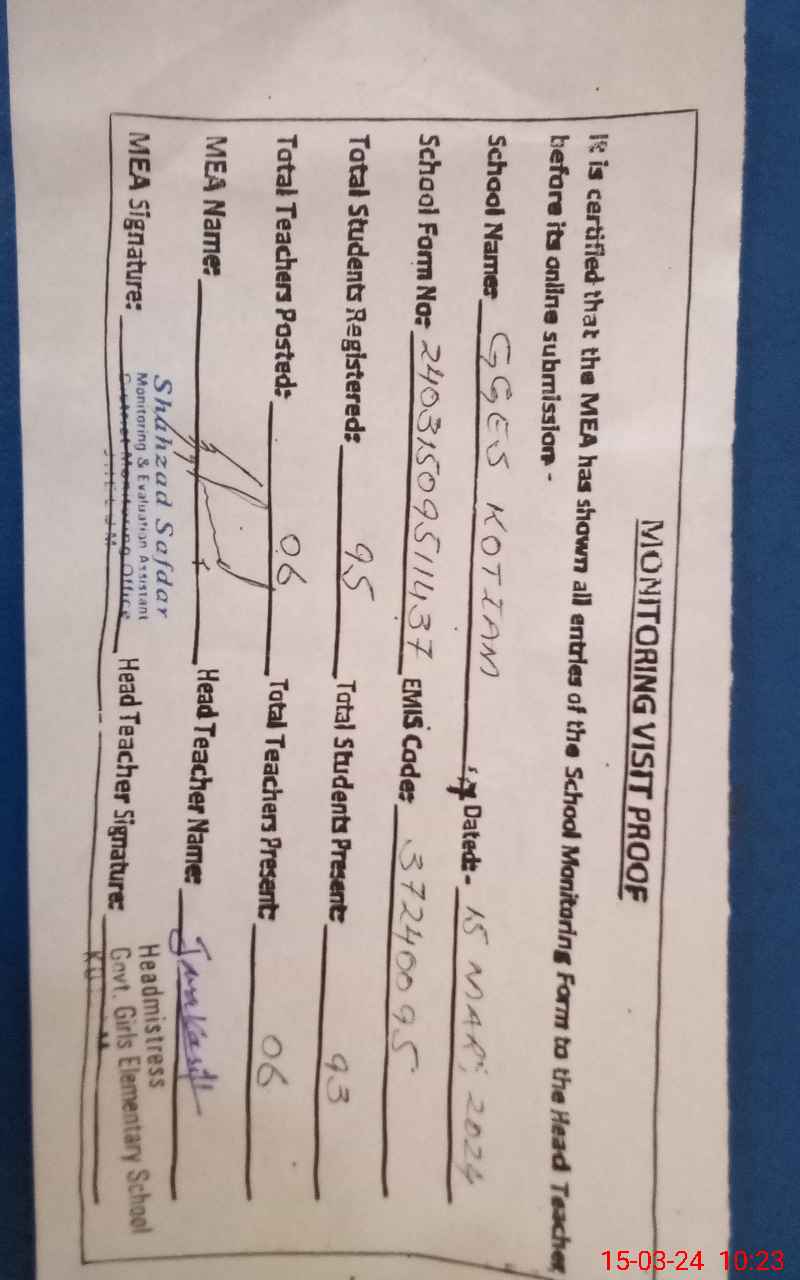 MONITORING VISIT PROOF
It is certified that the MEA has shown all entries of the School Monitoring Form to the Head Teacher
before its online submission.-
School Name: GGES KOTIAM Dated:- 15 MAR, 2024
School Form No: 24031509511437 EMIS Code: 37240095
Total Students Registered: 95 Total Students Present: 93
Total Teachers Posted: 06 Total Teachers Present: 06
MEA Name: Head Teacher Name:
MEA Signature: Head Teacher Signature:
Shahzad Safdar
Monitoring & Evaluation Assistant
Monitoring Office
Headmistress
Govt. Girls Elementary School
15-03-24 10:23